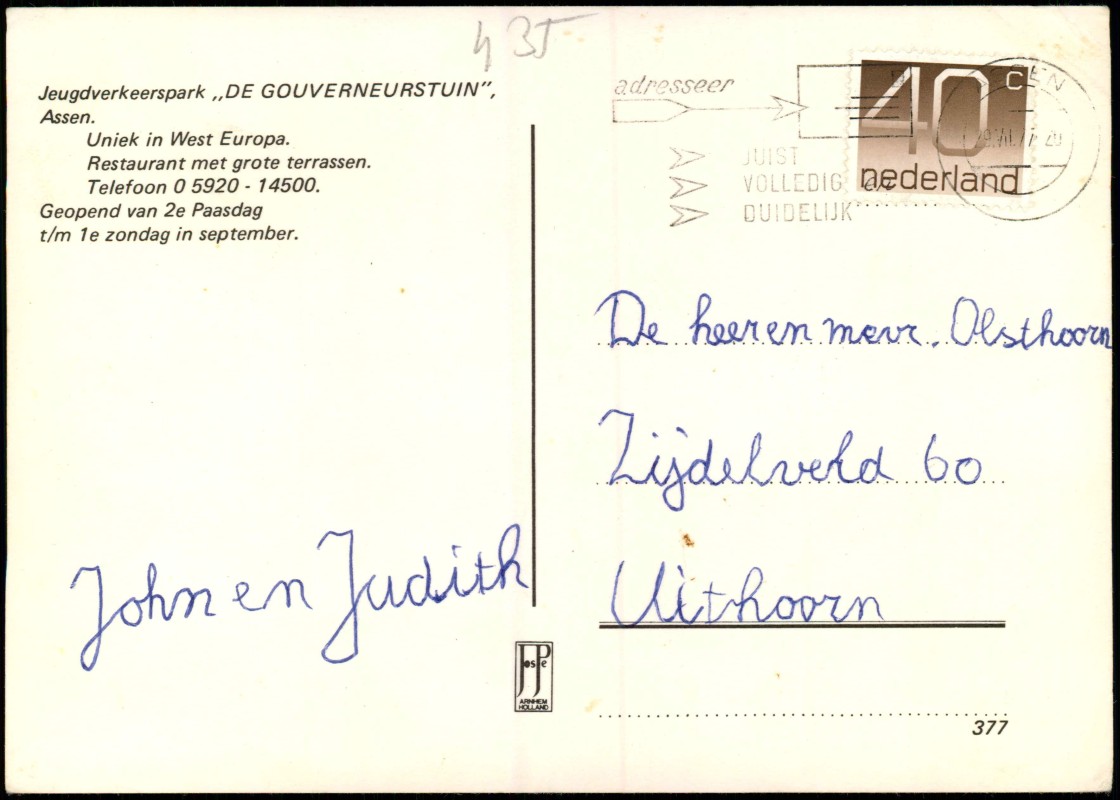 435
Jeugdverkeerspark „DE GOUVERNEURSTUIN”,
Assen.
Uniek in West Europa.
Restaurant met grote terrassen.
Telefoon 0 5920 - 14500.
Geopend van 2e Paasdag
t/m 1e zondag in september.
John en Judith
JosPe
ARNHEM
HOLLAND
adresseer
JUIST
VOLLEDIG en
DUIDELIJK
40 c
nederland
De heer en mevr. Olsthoorn
Zijdelveld 60
Uithoorn
377